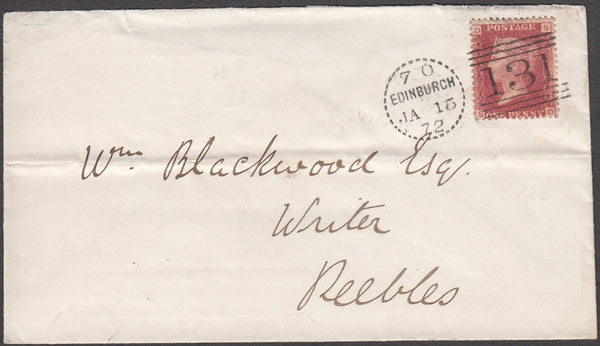 D POSTAGE S
131
S ONE PENNY D
7 O
EDINBURGH
JA 15
72
Wm Blackwood Esq.
Writer
Peebles